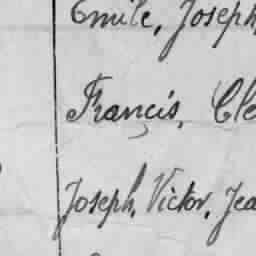 Emile, Joseph,
François, Cle
Joseph, Victor, Jea